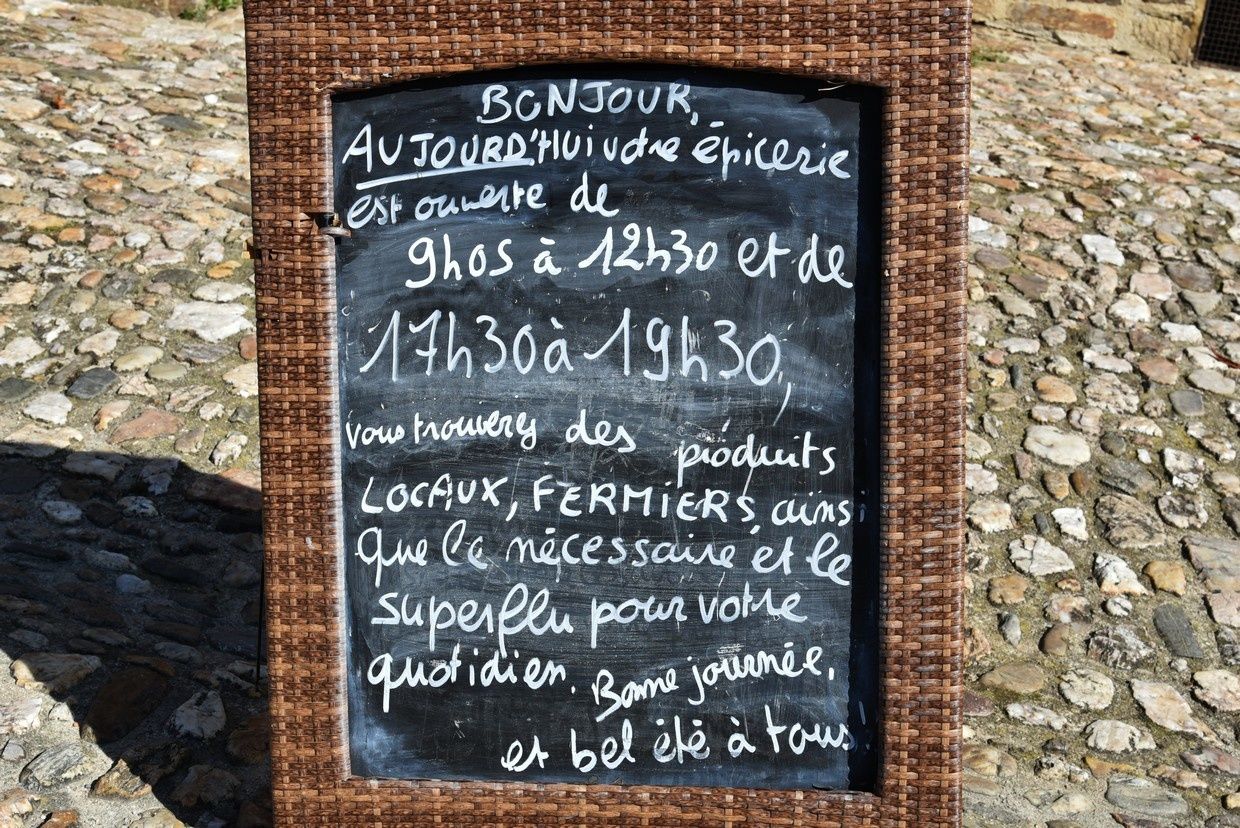 BONJOUR,
AUJOURD'HUI votre épicerie
est ouverte de
9h05 à 12h30 et de
17h30 à 19h30,
vous trouverez des produits
LOCAUX, FERMIERS, ainsi
que le nécessaire et le
superflu pour votre
quotidien. Bonne journée,
et bel été à tous!